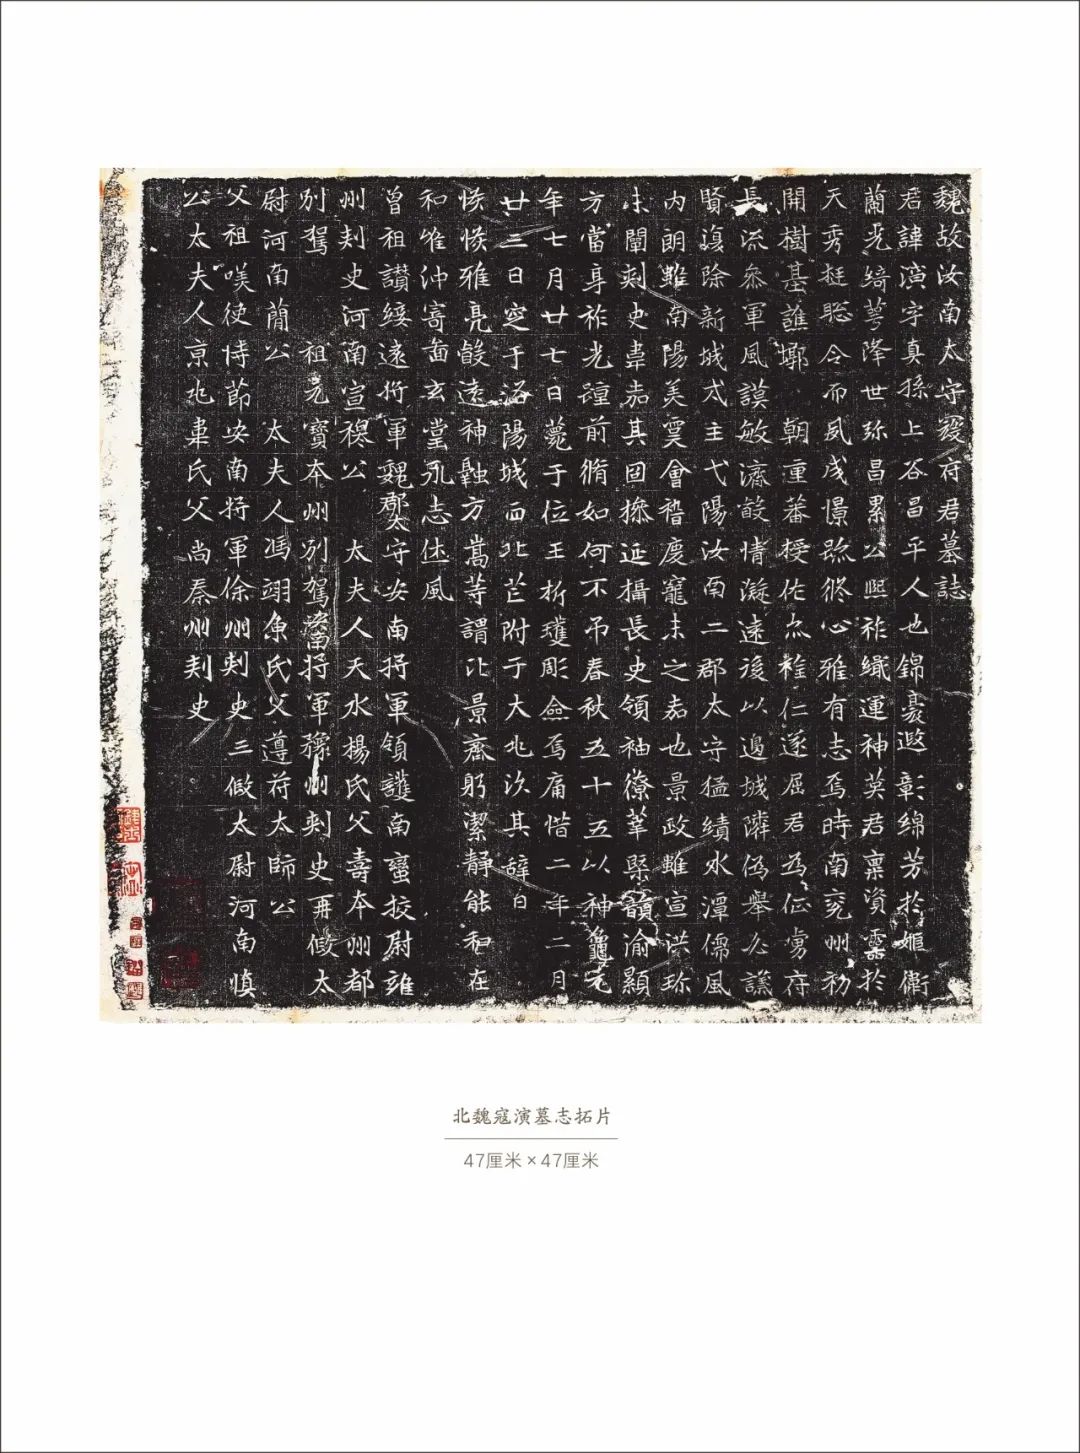 魏故汝南太守寇府君墓誌
君諱演字真孫上谷昌平人也錦裛遐彰綿芳扵姬衛
蘭光綺萼降世弥昌累公熙祚纖運神英君稟資靈扵
天秀挺聡令而夙成憬踪修心雅有志焉時南兖州初
開樹基譙鄴　朝重蕃授佐尒稚仁遂屈君為征虜府
長流叅軍風謨敏濬毃情凝遠後以邊城隣伪舉尒議
賢復除新城戍主弋陽汝南二郡太守猛績水潭儒風
內朗雖南陽美　會稽慶寵未之嘉也景政雖宣洪珎
未闡刺史韋嘉其固㨿延攝長史領袖僚菫　韻渝顯
方當身祚光躔前脩如何不吊春秋五十五以神龜元
年七月廿七日薨于位王折瓊彫僉焉痛惜二年二月
廿三日窆于洛陽城西北芒附于大兆次其辞曰
悠悠雅亮毃遠神融方嵩等謂比景齊躬潔靜能和在
和惟沖寄畄玄堂永志休風
曾祖讚綏遠将軍魏郡太守安南将軍領護南蠻挍尉雍
州刺史河南宣穆公　太夫人天水楊氏父壽本州都
別駕　祖元寶本州別駕安南将軍豫州刺史再假太
尉河南簡公　太夫人馮翊魚氏父遵苻太師公
父祖嘆使持節安南将軍徐州刺史三假太尉河南慎
公太夫人京兆韋氏父尚秦州刺史
北魏寇演墓志拓片
47厘米×47厘米